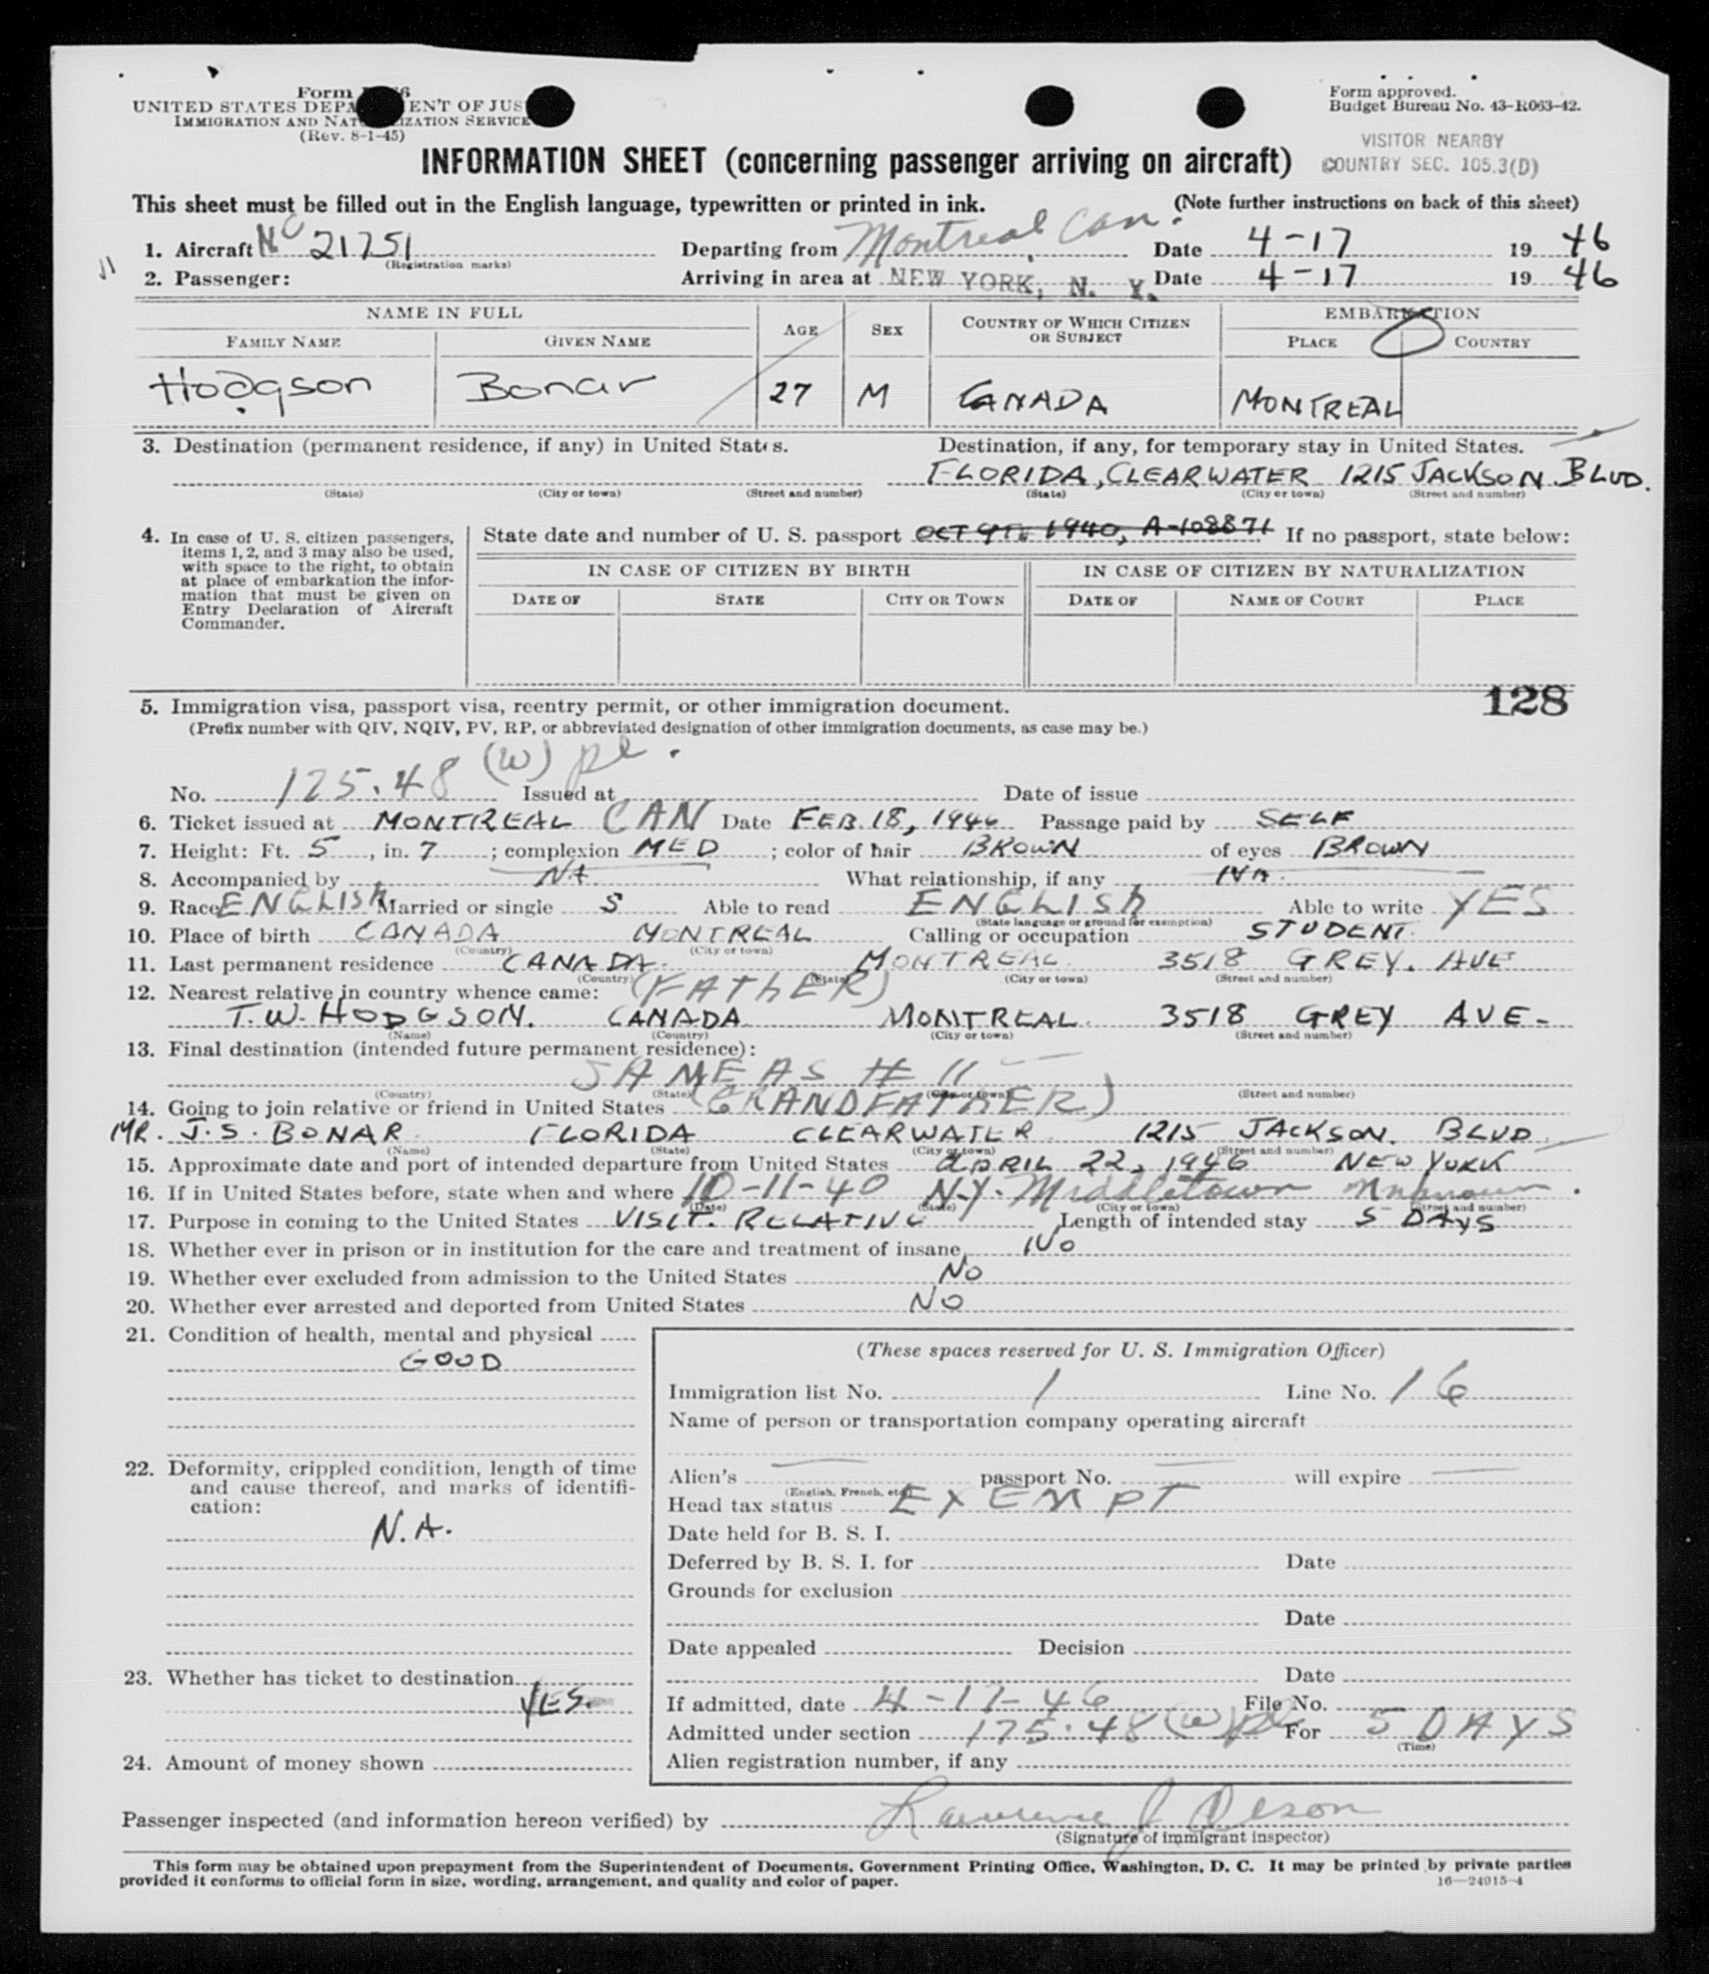 Form
UNITED STATES DEPA ENT OF JUS
IMMIGRATION AND NAT IZATION SERVICE
(Rev. 8-1-45)
Form approved.
Budget Bureau No. 43-R063-42.
VISITOR NEARBY
COUNTRY SEC. 105.3(D)
INFORMATION SHEET (concerning passenger arriving on aircraft)
This sheet must be filled out in the English language, typewritten or printed in ink. (Note further instructions on back of this sheet)
1. Aircraft NC 21751 Departing from Montreal Can. Date 4-17 19 46
(Registration marks)
2. Passenger: Arriving in area at NEW YORK, N. Y. Date 4-17 19 46
NAME IN FULL AGE SEX COUNTRY OF WHICH CITIZEN OR SUBJECT EMBARKATION
FAMILY NAME GIVEN NAME PLACE COUNTRY
Hodgson Bonar 27 M CANADA MONTREAL
3. Destination (permanent residence, if any) in United States. Destination, if any, for temporary stay in United States.
FLORIDA, CLEARWATER 1215 JACKSON BLVD.
(State) (City or town) (Street and number) (State) (City or town) (Street and number)
4. In case of U. S. citizen passengers, items 1, 2, and 3 may also be used, with space to the right, to obtain at place of embarkation the information that must be given on Entry Declaration of Aircraft Commander.
State date and number of U. S. passport OCT 9TH 1940, A-108871 If no passport, state below:
IN CASE OF CITIZEN BY BIRTH IN CASE OF CITIZEN BY NATURALIZATION
DATE OF STATE CITY OR TOWN DATE OF NAME OF COURT PLACE
128
5. Immigration visa, passport visa, reentry permit, or other immigration document.
(Prefix number with QIV, NQIV, PV, RP, or abbreviated designation of other immigration documents, as case may be.)
No. 175.48 (W) pl. Issued at Date of issue
6. Ticket issued at MONTREAL CAN Date FEB. 18, 1946 Passage paid by SELF
7. Height: Ft. 5, in. 7; complexion MED; color of hair BROWN of eyes BROWN
8. Accompanied by NA What relationship, if any NA.
9. Race ENGLISH Married or single S Able to read ENGLISH Able to write YES
(State language or ground for exemption)
10. Place of birth CANADA MONTREAL Calling or occupation STUDENT.
(Country) (City or town)
11. Last permanent residence CANADA. MONTREAL. 3518 GREY. AVE
(Country) (State) (City or town) (Street and number)
12. Nearest relative in country whence came: (FATHER)
T. W. HODGSON. CANADA MONTREAL. 3518 GREY AVE-
(Name) (Country) (City or town) (Street and number)
13. Final destination (intended future permanent residence):
SAME AS # 11
(Country) (State) (City or town) (Street and number)
14. Going to join relative or friend in United States (GRANDFATHER)
MR. J. S. BONAR FLORIDA CLEARWATER 1215 JACKSON. BLVD.
(Name) (State) (City or town) (Street and number)
15. Approximate date and port of intended departure from United States APRIL 22, 1946 NEW YORK
16. If in United States before, state when and where 10-11-40 N.Y. Middletown Unknown.
(Date) (State) (City or town) (Street and number)
17. Purpose in coming to the United States VISIT. RELATIVE Length of intended stay 5 DAYS
18. Whether ever in prison or in institution for the care and treatment of insane, No
19. Whether ever excluded from admission to the United States No
20. Whether ever arrested and deported from United States NO
21. Condition of health, mental and physical
GOOD
22. Deformity, crippled condition, length of time and cause thereof, and marks of identification:
N.A.
23. Whether has ticket to destination
YES.
24. Amount of money shown
(These spaces reserved for U. S. Immigration Officer)
Immigration list No. 1 Line No. 16
Name of person or transportation company operating aircraft
Alien's passport No. will expire
(English, French, etc.)
Head tax status EXEMPT
Date held for B. S. I.
Deferred by B. S. I. for Date
Grounds for exclusion
Date
Date appealed Decision
Date
If admitted, date 4-17-46 File No.
Admitted under section 175.48 (W) pl For 5 DAYS
(Time)
Alien registration number, if any
Passenger inspected (and information hereon verified) by Lawrence J Olson
(Signature of immigrant inspector)
This form may be obtained upon prepayment from the Superintendent of Documents, Government Printing Office, Washington, D. C. It may be printed by private parties
provided it conforms to official form in size, wording, arrangement, and quality and color of paper.
16—24015-4